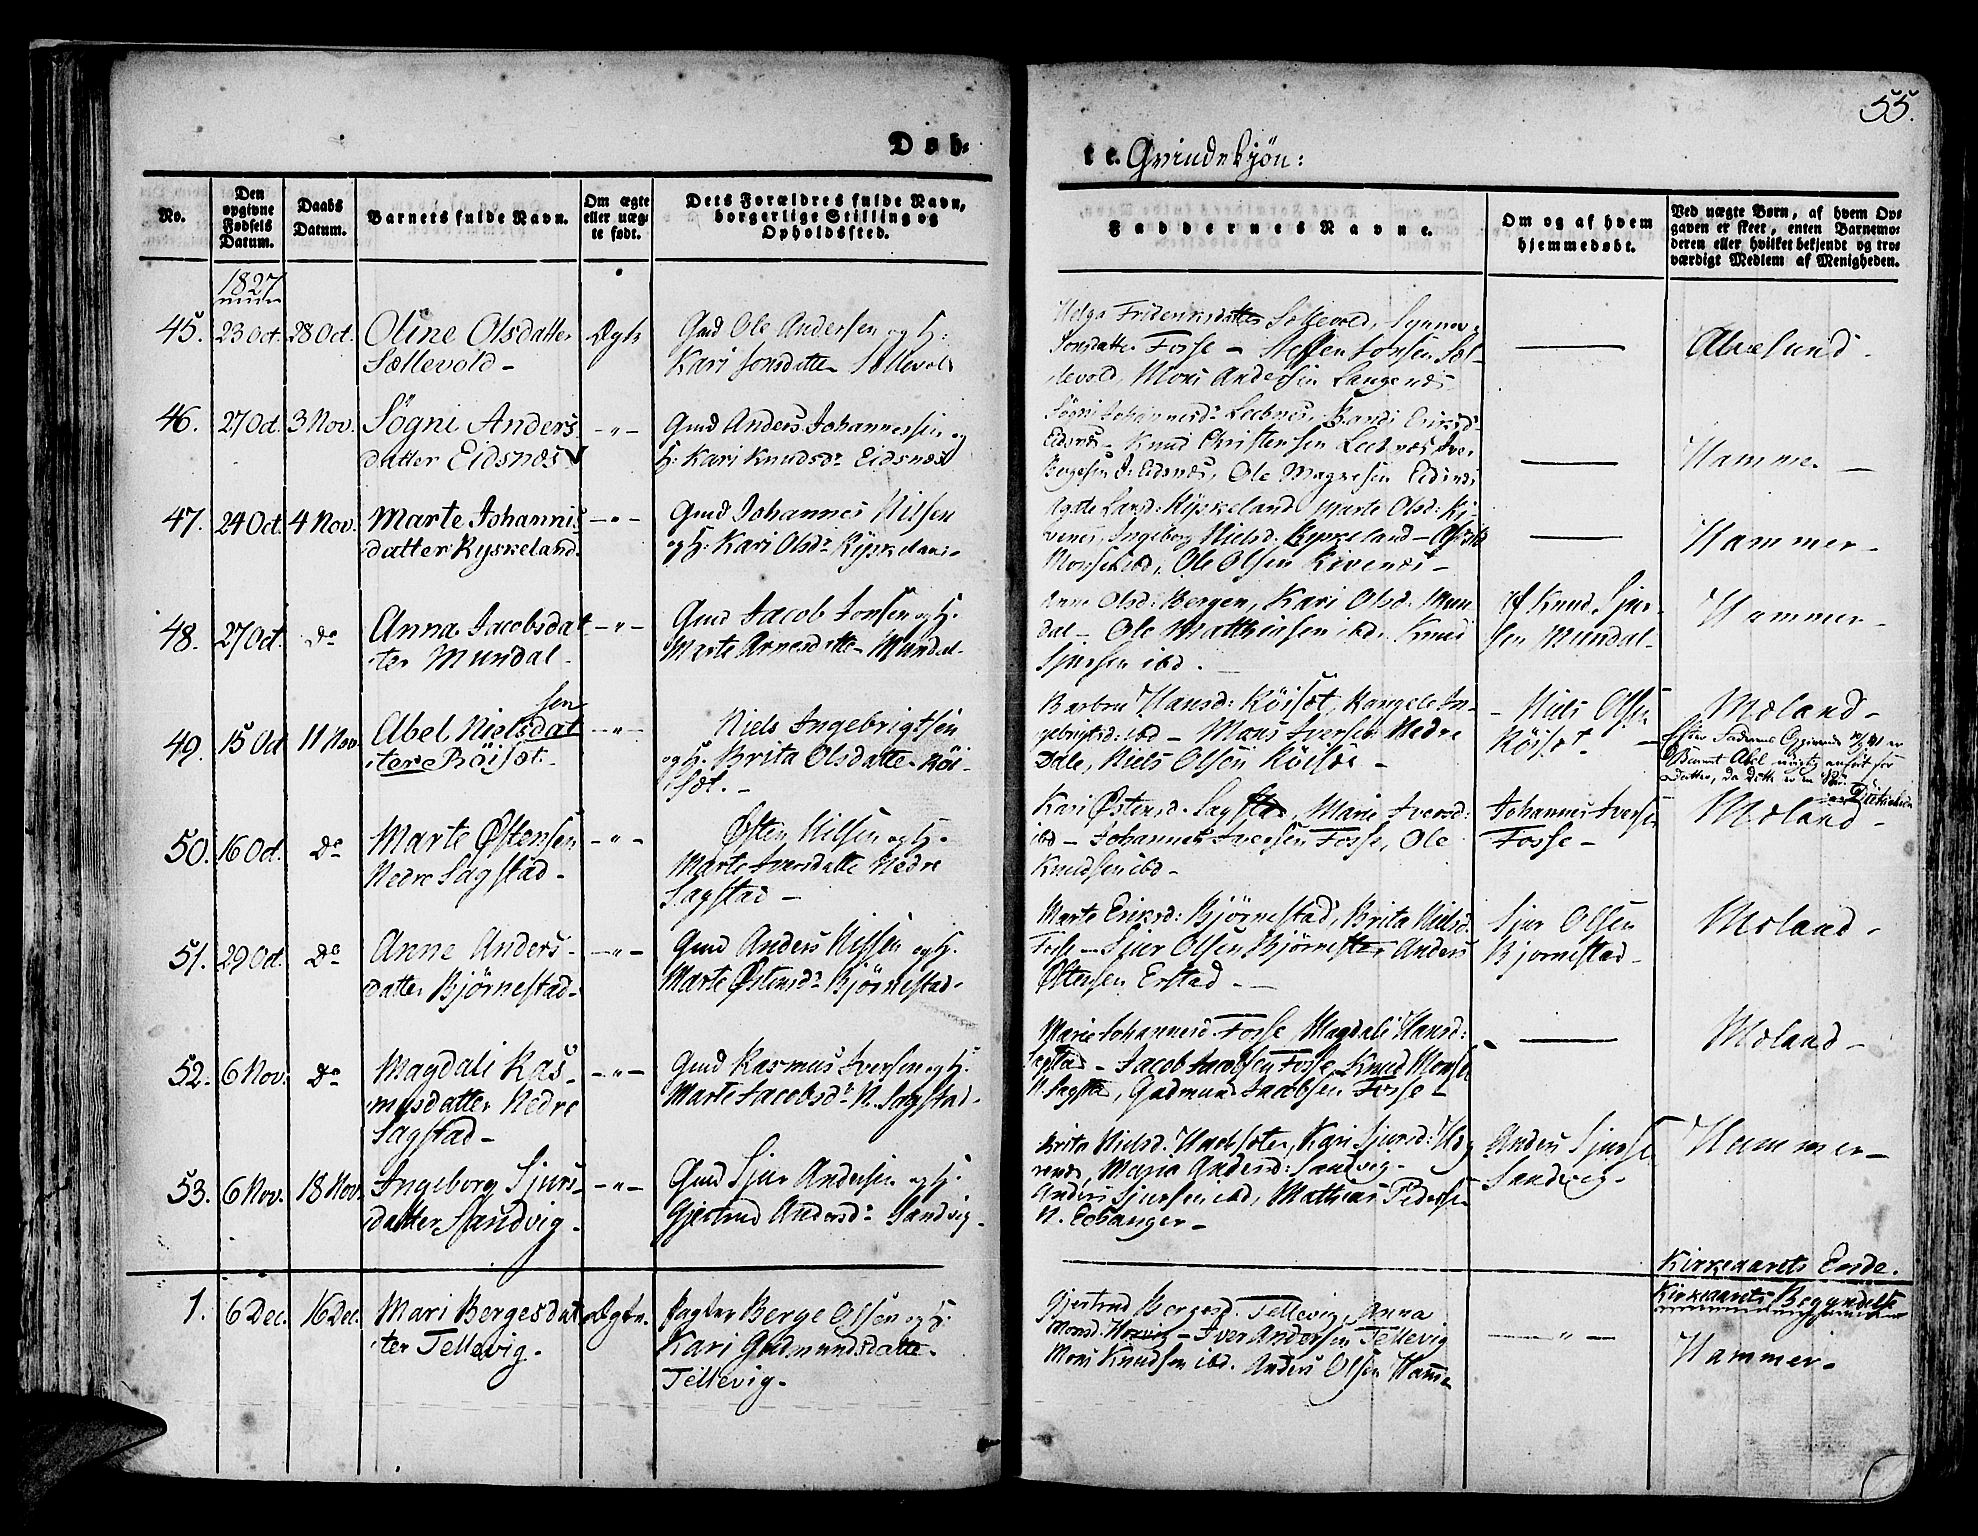 55.
Døb-
te. Qvindekjön:
No.
Den
opgivne
Fødsels
Datum.
Daabs
Datum.
Barnets fulde Navn.
Om ægte
eller uæg-
te født.
Dets Forældres fulde Navn,
borgerlige Stilling og
Opholdssted.
Faddernes Navne.
Om og af hvem
hjemmedøbt.
Ved uægte Børn, af hvem Op-
gaven er skeet, enten Barnemo-
deren eller hvilket bekjendt og tro-
værdigt Medlem af Menigheden.
1827
45. 23 Oct. 28 Oct. Oline Olsdatter
Sællevold -
Ægte
Gmd Ole Andersen og H:
Kari Jonsdatter Sællevold
Helga Frideriksdatter Sellevold, Synnev
Jonsdatter Fosse - Steffen Jonsen Sel-
levold, Mons Andersen Langenæs
Alversund -
46. 27 Oct. 3 Nov. Sögni Anders
datter Eidsnæs
- " -
Gmd Anders Johannessen og
H: Kari Knudsdr Eidsnæs
Sögni Johannesdr Leebnes, Brandi Eriksdr
Eidsnæs - Knud Christensen Leebnæs Iver
Bergesen Eidsnæs, Ole Magnesen Eidsnæs
Hammer -
47. 24 Oct. 4 Nov. Marte Johannis
datter Ryskeland
- " -
Gmd Johannes Nilsen
og H: Kari Olsdr Ryskeland
Ryskeland Marte Olsd: Ri-
venes, Ingeborg Nielsd. Ryskeland -
Monsen ibd, Ole Olsen Rivenæs -
Hammer -
48. 27 Oct. Do Anna Jacobsdat
ter Mundal.
- " -
Gmd Jacob Jonsen og H.
Marte Arnesdatter Mundal
Anna Olsd: Bergen, Kari Olsd: Mun
dal - Ole Matthiesen ibd. Knud
Sjursen ibd.
Af Knud Sjur-
sen Mundal -
Hammer -
49. 15 Oct 11 Nov. Abel Nielsdat
sen
ter Röisæt.
- " -
Niels Ingebrigtsen
og H. Brita Olsdatter Röi-
sæt. -
Barbru Hansd: Röisæt, Rangele In-
gebrigtsd: ibd - Mans Iversen Nedre
Dale, Niels Olsen Röisæt -
Niels Olsen
Röisæt -
Mæland -
Efter Faderens Opgivende er
Barnet Abel urigtig anfört for
Datter, da dette er en Sön.
50. 16 Oct. Do Marte Østensen
Nedre Sagstad -
- " -
Østen Nilsen og H.
Marte Iversdatter Nedre
Sagstad -
Kari Østensd. Sagstad, Marie Iversd:
ibd - Johannes Iversen Fosse, Ole
Knudsen ibd -
Johannes Iversen
Fosse -
Mæland -
51. 29 Oct. Do Anne Anders-
datter Björnestad -
- " -
Gmd Anders Nilsen og H.
Marte Østensdr Björnestad -
Marte Eriksd: Björnestad, Brita Nielsd.
Fosse - Sjur Olsen Björnestad Anders
Østensen Erstad -
Sjur Olsen
Bjornestad -
Mæland -
52. 6 Nov. Do Magdali Ras-
musdatter Nedre
Sagstad -
- " -
Gmd Rasmus Iversen og H.
Marte Jacobsdr N. Sagstad -
Marie Johannesd. Fosse, Magdali Hansd:
Sagstad - Jacob Jacobsen Fosse, Knud Monsen
N. Sagstad, Gudmund Jacobsen Fosse -
Mæland -
53. 6 Nov. 18 Nov. Ingeborg Sjurs-
datter Sandvig -
- " -
Gmd Sjur Andersen og H.
Gjertrud Andersdr Sandvig -
Brita Nielsd. Kari Sjursd:
Maria Andersd: Sandvig -
Anders Sjursen ibd, Mathias Pedersen
N. Eebanger -
Anders Sjursen
Sandvig -
Hammer -
Kirkeaarets Ende.
Kirkeaarets Begyndelse
1. 6 Dec. 16 Dec. Mari Bergesdat
ter Tellevig -
Ægte.
Berge Olsen og H:
Kari Gudmundsdatter
Tellevig -
Gjertrud Bergesd. Tellevig, Anna
Monsd. - Iver Andersen Tellevig
Mons Knudsen ibd. Anders Olsen Hammer
- " -
Hammer -